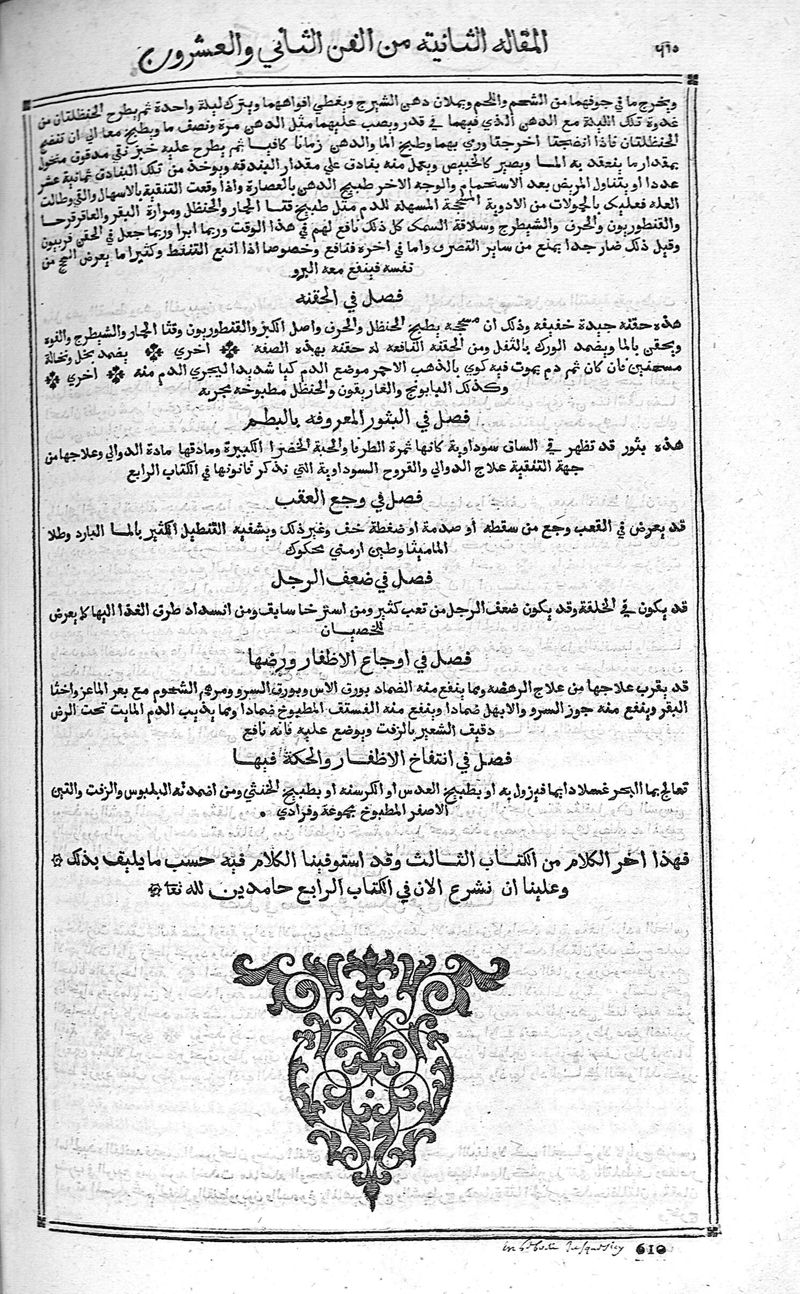 ٦١٥
المقاله الثانيته من الفن الثاني والعشرون
ويخرج ما في جوفهما من الشحم واللحم ويملان دهن الشيرج ويغطي افواههما ويترك ليلة واحدة ثم يطرح الحنظلتان من
غدوة تلك الليلة مع الدهن الذي فيهما في قدر ويصب عليهما مثل الدهن مرة ونصف ما ويطبخ معا الي ان تنضج
الحنظلتان فاذا انضجتا اخرجتا وري بهما وطبخ الما والدهن زمانا كافيا ثم يطرح عليه خبز نقي مدقوق منخول
بمقدار ما ينعقد به المـا ويصير كالخبيص ويعمل منه بنادق علي مقدار البندقه ويوخذ من تلك البنادق ثمانية عشر
عددا او يتناول المريض بعد الاستحمام والوجه الاخر طبيخ الدهن بالعصارة واذا وقعت التنقية بالاسهال والقي وطالت
العله فعليك بالحمولات من الادوية المسحجة المسهله للدم مثل طبيخ قثـا الحمار والحنظل ومرارة البقر والعاقرقرحـا
والقنطوريون والحرف والشيطرج وسلاقة السمك كل ذلك نافع لهم في هذا الوقت وربما ابرا وربما جعل في الحقن فربيون
وقبل ذلك ضار جدا يمنع من ساير التصرف واما في اخره فنافع وخصوصا اذا اتبع التنقط وكثيرا ما يعرض السحج من
نفسه فينفع معه البرو
فصل في الحقنه
هذه حقنه جيدة خفيفه وذلك ان مسحجه بطبيخ الحنظل والحرف واصل الكبر والقنطوريون وقثا الحمار والشيطرج والفوه
ويحقن بالما ويضمد الورك بالثفل ومن الحقنه النافعه له حقنه بهذه الصفه اخري يضمد بخل ونخالة
مسخنين فان كان ثم دم يموت فيه كوي بالذهب الاحمر موضع الدم كيا شديدا ليجري الدم منه اخري
وكذلك البابونج والغاريقون والحنظل مطبوخه مجربه
فصل في البثور المعروفه بالبطم
هذه بثور قد تظهر في الساق سوداوية كانها ثمرة الطرفا والحبة الخضرا الكبيرة ومادتها مادة الدوالي وعلاجها من
جهة التنقية علاج الدوالي والقروح السوداوية التي نذكر قانونها في الكتاب الرابع
فصل في وجع العقب
قد يعرض في القعب وجع من سقطه او صدمة او ضغطة خف وغير ذلك ويشفيه التنطيل الكثير بالمـا البارد وطلا
الماميثا وطين ارمني محكوك
فصل في ضعف الرجل
قد يكون في الخلقة وقد يكون ضعف الرجل من تعب كثير ومن استرخا سابق ومن انسداد طرق الغذا اليها كما يعرض
للخصيـان
فصل في اوجاع الاظفار ورضها
قد يقرب علاجها من علاج الرهصه ومما ينفع منه الضماد بورق الاس وبورق السرو ومرهم الشحوم مع بعر الماعز واخثا
البقر وينفع منه جوز السرو والابهل ضمادا وينفع منه الفستف المطبوخ ضمادا ومما يذيب الدم المايت تحت الرض
دقيق الشعير بالزفت ويوضع عليه فانه نافع
فصل في انتفاخ الاظفـار والحكة فيهـا
تعالج بما البحر غسلا دايما فيزول به او بطبيخ العدس او الكرسنه او بطبيخ الخنثي ومن اضمدته البلبوس والزفت والتين
الاصفر المطبوخ مجموعة وفرادي
فهذا اخر الكلام من الكتاب الثالث وقد استوفينا الكلام فيه حسب ما يليف بذلك
وعلينا ان نشرع الان في الكتاب الرابع حامدين لله تعا
610